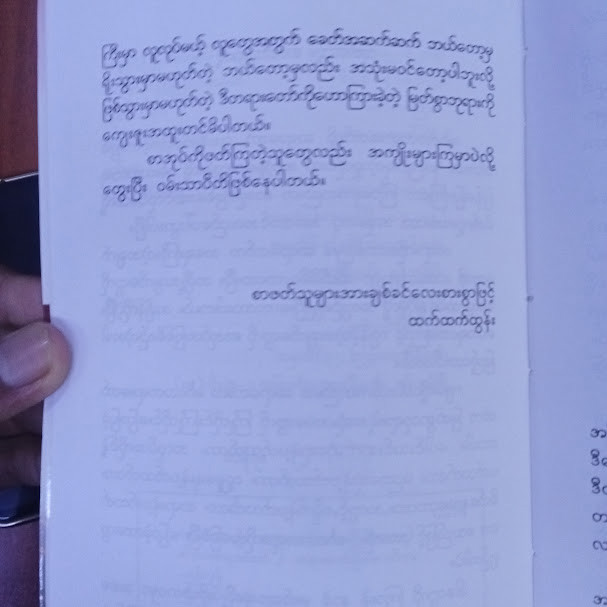 ကြီးမှာ လူလုပ်မယ့် လူတွေအတွက် ခေတ်အဆက်ဆက် ဘယ်တော့မှ
ရိုးသွားမှာမဟုတ်တဲ့ ဘယ်တော့မှလည်း အသုံးမဝင်တော့ပါဘူးလို့
ဖြစ်သွားမှာမဟုတ်တဲ့ ဒီတရားတော်ကိုဟောကြားခဲ့တဲ့ မြတ်စွာဘုရားကို
ကျေးဇူးအထူးတင်မိပါတယ်။
စာအုပ်ကိုဖတ်ကြတဲ့သူတွေလည်း အကျိုးများကြမှာပဲလို့
တွေးပြီး ဝမ်းသာပီတိဖြစ်နေပါတယ်။
စာဖတ်သူများအားချစ်ခင်လေးစားစွာဖြင့်
ထက်ထက်ထွန်း